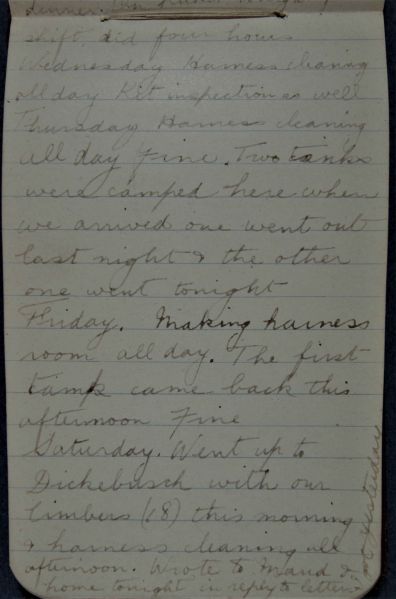 shift, did four hours
Wednesday Harness cleaning
all day Kit inspection as well
Thursday Harness cleaning
all day Fine. Two tanks
were camped here when
we arrived one went out
last night & the other
one went tonight
Friday. Making harness
room all day. The first
tank came back this
afternoon Fine
Saturday. Went up to
Dickebusch with our
limbers (18) this morning
& harness cleaning all
afternoon. Wrote to Maud &
home tonight in reply to letters
yesterday